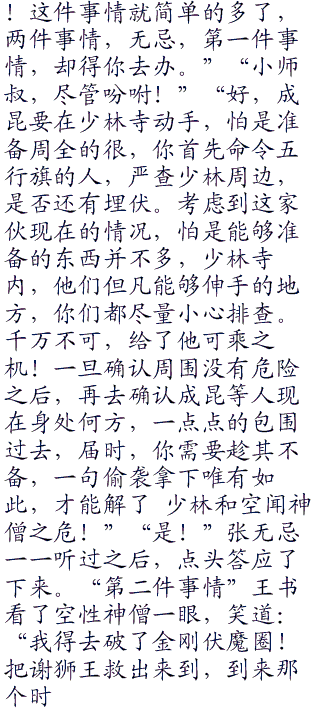 ！这件事情就简单的多了，
两件事情，无忌，第一件事
情，却得你去办。”“小师
叔，尽管吩咐！”“好，成
昆要在少林寺动手，怕是准
备周全的很，你首先命令五
行旗的人，严查少林周边，
是否还有埋伏。考虑到这家
伙现在的情况，怕是能够准
备的东西并不多，少林寺
内，他们但凡能够伸手的地
方，你们都尽量小心排查。
千万不可，给了他可乘之
机！一旦确认周围没有危险
之后，再去确认成昆等人现
在身处何方，一点点的包围
过去，届时，你需要趁其不
备，一句偷袭拿下唯有如
此，才能解了 少林和空闻神
僧之危！”“是！”张无忌
一一听过之后，点头答应了
下来。“第二件事情”王书
看了空性神僧一眼，笑道：
“我得去破了金刚伏魔圈！
把谢狮王救出来到，到来那
个时